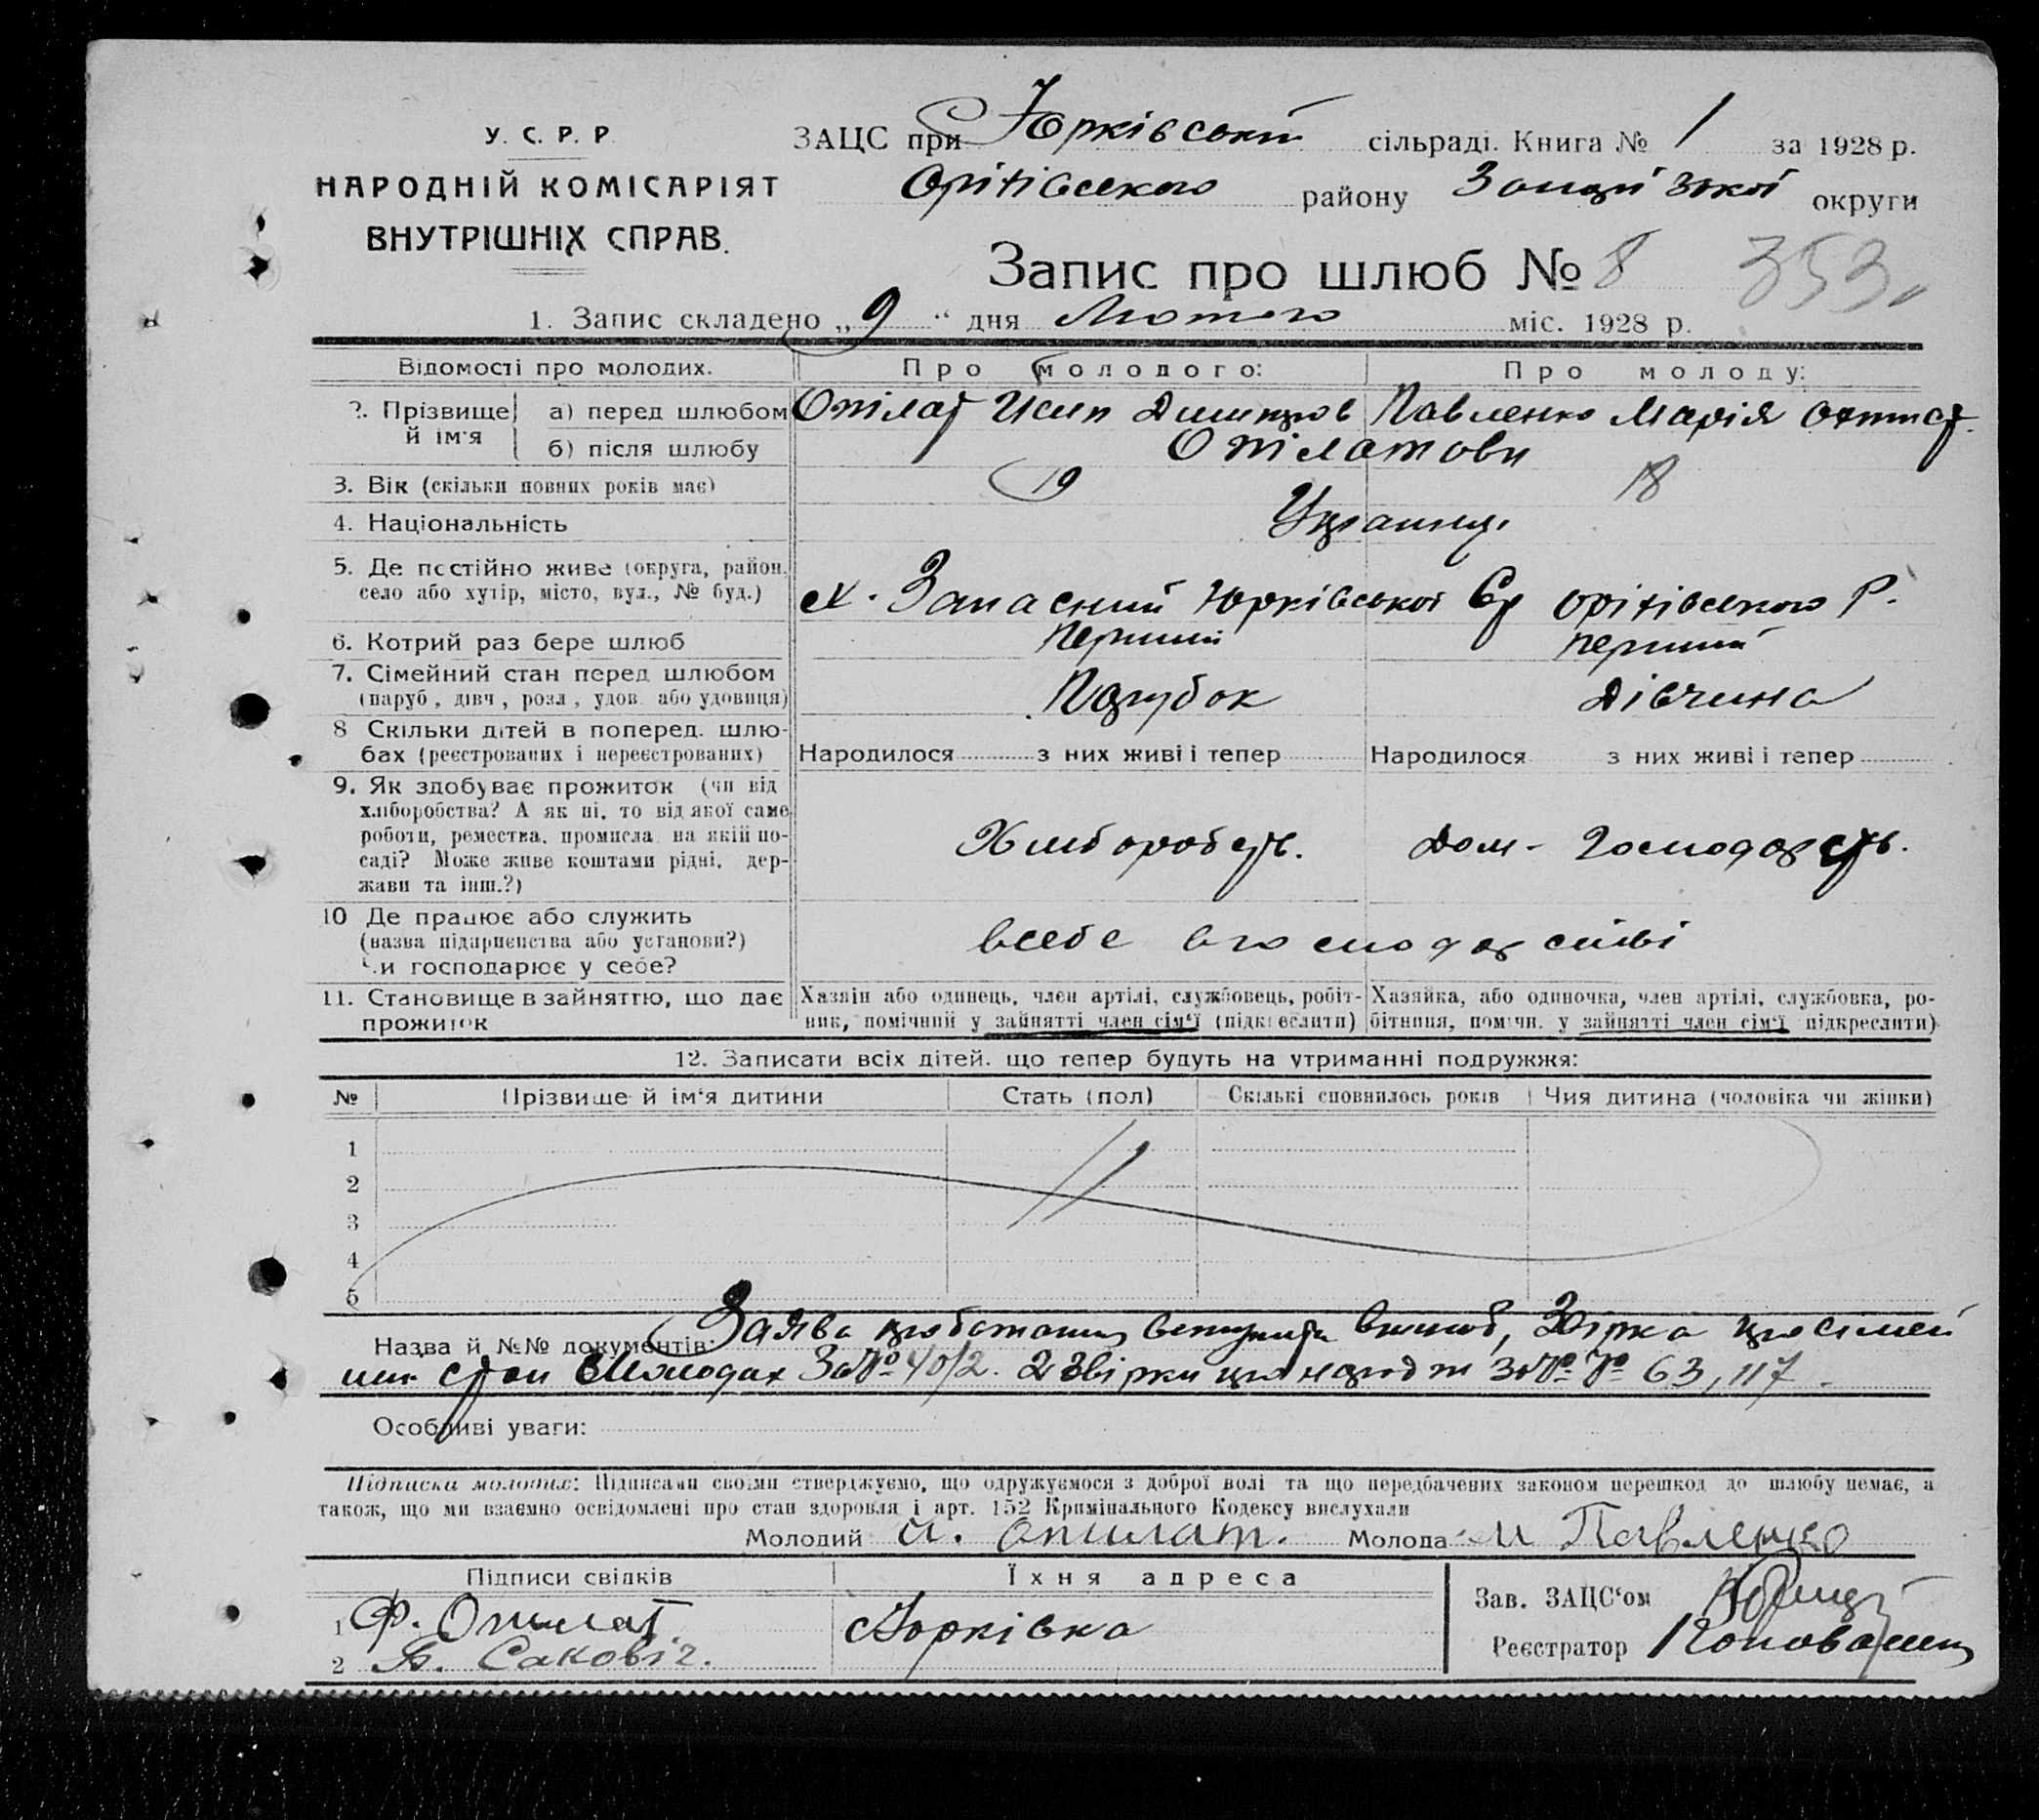 У. С. Р. Р.
НАРОДНІЙ КОМІСАРІЯТ
ВНУТРІШНІХ СПРАВ.
ЗАЦС при Юрківській сільраді. Книга № 1 за 1928 р.
Оріхівського району округи
Запис про шлюб № 8 353
1. Запис складено „9“ дня Лютого міс. 1928 р.
Відомості про молодих. Про молодого: Про молоду:
2. Прізвище й ім'я
а) перед шлюбом Опілат Павленко Марія
б) після шлюбу Опілатови
3. Вік (скільки повних років має) 19 18
4. Національність
5. Де постійно живе (округа, район, село або хутір, місто, вул., № буд.)
х. Запасний Юрківської Ср Оріхівського Р.
6. Котрий раз бере шлюб перший перший
7. Сімейний стан перед шлюбом Парубок Дівчина
(паруб, дівч, розл, удов. або удовиця)
8 Скільки дітей в поперед. шлю-
бах (реєстрованих і нереєстрованих)
Народилося з них живі і тепер Народилося з них живі і тепер
9. Як здобуває прожиток (чи від
хліборобства? А як ні, то від якої саме
роботи, ремества, промисла на якій по-
саді? Може живе коштами рідні, дер-
жави та інш.?)
Хліборобств. Дом-господарств.
10 Де працює або служить
(назва підприємства або установи?)
Чи господарює у себе?
всебе вгосподарстві
11. Становище в зайняттю, що дає
прожиток
Хазяїн або одинець, член артілі, службовець, робіт-
ник, помічний у зайнятті член сім'ї (підкреслити)
Хазяйка, або одиночка, член артілі, службовка, ро-
бітниця, помічн. у зайнятті член сім'ї підкреслити)
12. Записати всіх дітей, що тепер будуть на утриманні подружжя:
№ Прізвище й ім'я дитини Стать (пол) Скількі сповнилось років Чия дитина (чоловіка чи жінки)
1
2
3
4
5
Назва й №№ документів: Заява
За № 40/2. 2 звірки за №№ 63, 117.
Особливі уваги:
Підписка молодих: Підписами своїми стверджуємо, що одружуємося з доброї волі та що передбачених законом перешкод до шлюбу немає, а
також, що ми взаємно освідомлені про стан здоровля і арт. 152 Кримінального Кодексу вислухали
Молодий И. Опилат. Молода М Павленко
Підписи свідків Їхня адреса
1 Ф. Опилат Юрківка
2 Саковіч.
Зав. ЗАЦС'ом
Реєстратор